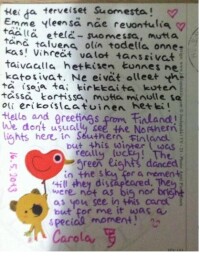 Hei ja terveiset Suomesta!
Emme yleensä näe revontulia
täällä etelä-suomessa, mutta
tänä talvena olin todella onne-
kas! Vihreät valot tanssivat
taivaalla hetkisen kunnes ne
katosivat. Ne eivät olleet yhtä
isoja tai kirkkaita kuten
tässä kortissa, mutta minulle se
oli erikoislaatuinen hetki!
Hello and greetings from Finland!
We don't usually see the Northern
lights here in Southern Finland
but this winter I was
really lucky! The
green lights danced
in the sky for a moment
till they disappeared. They
were not as big nor bright
as you see in this card
but for me it was a
special moment!
Carola